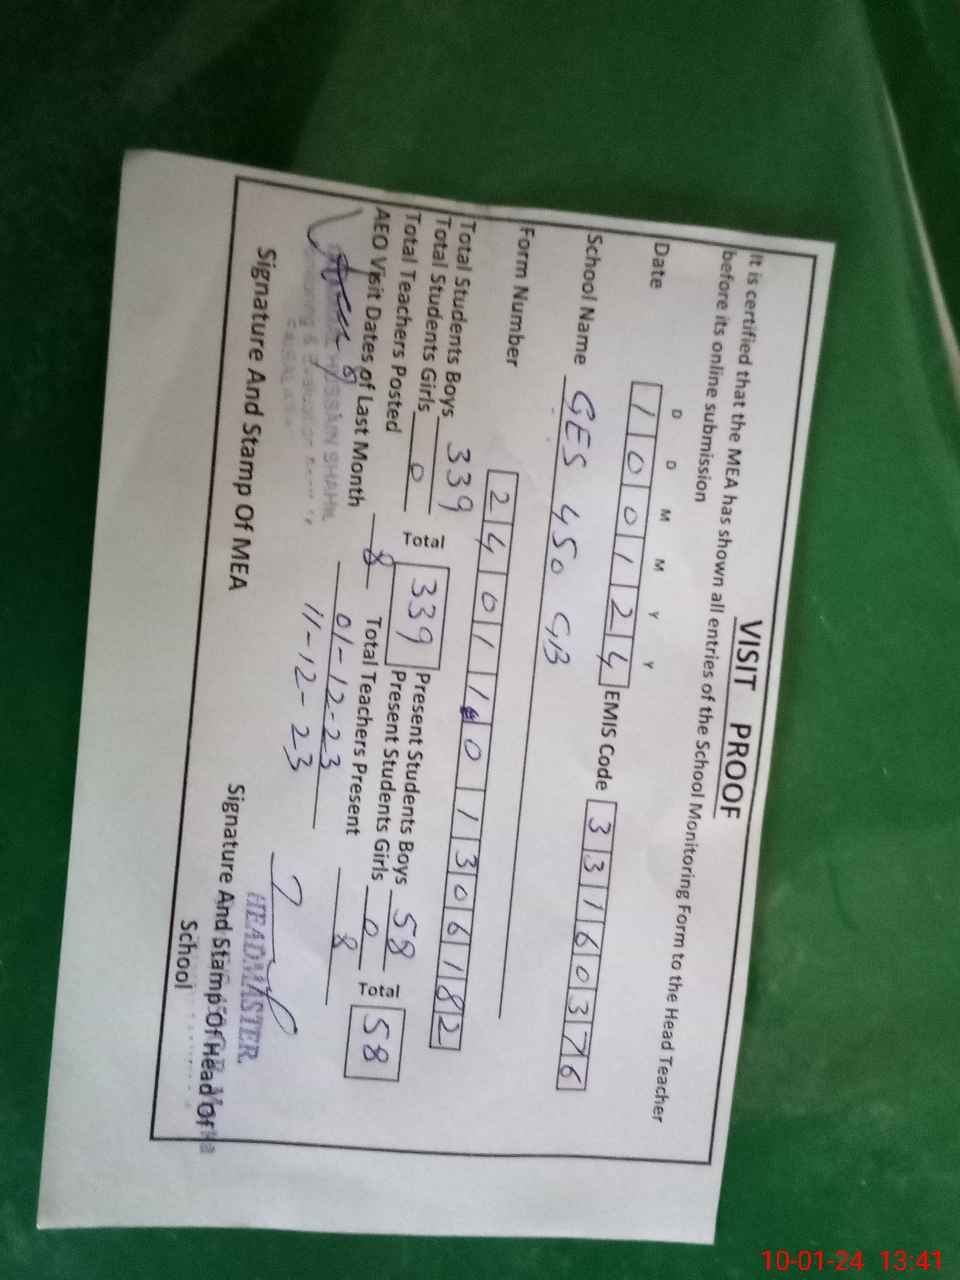 VISIT PROOF
It is certified that the MEA has shown all entries of the School Monitoring Form to the Head Teacher
before its online submission
D D M M Y Y
Date 100124 EMIS Code 33160376
School Name GES 450 GB
Form Number 2401101306182
Total Students Boys 339 Total 339 Present Students Boys 58 Total 58
Total Students Girls 0 Present Students Girls 0
Total Teachers Posted 8 Total Teachers Present 8
AEO Visit Dates of Last Month 01-12-23
11-12-23
HUSSAIN SHAH
Monitoring & Evaluation
HEADMASTER
Signature And Stamp Of MEA
Signature And Stamp Of Head Of
School
10-01-24 13:41